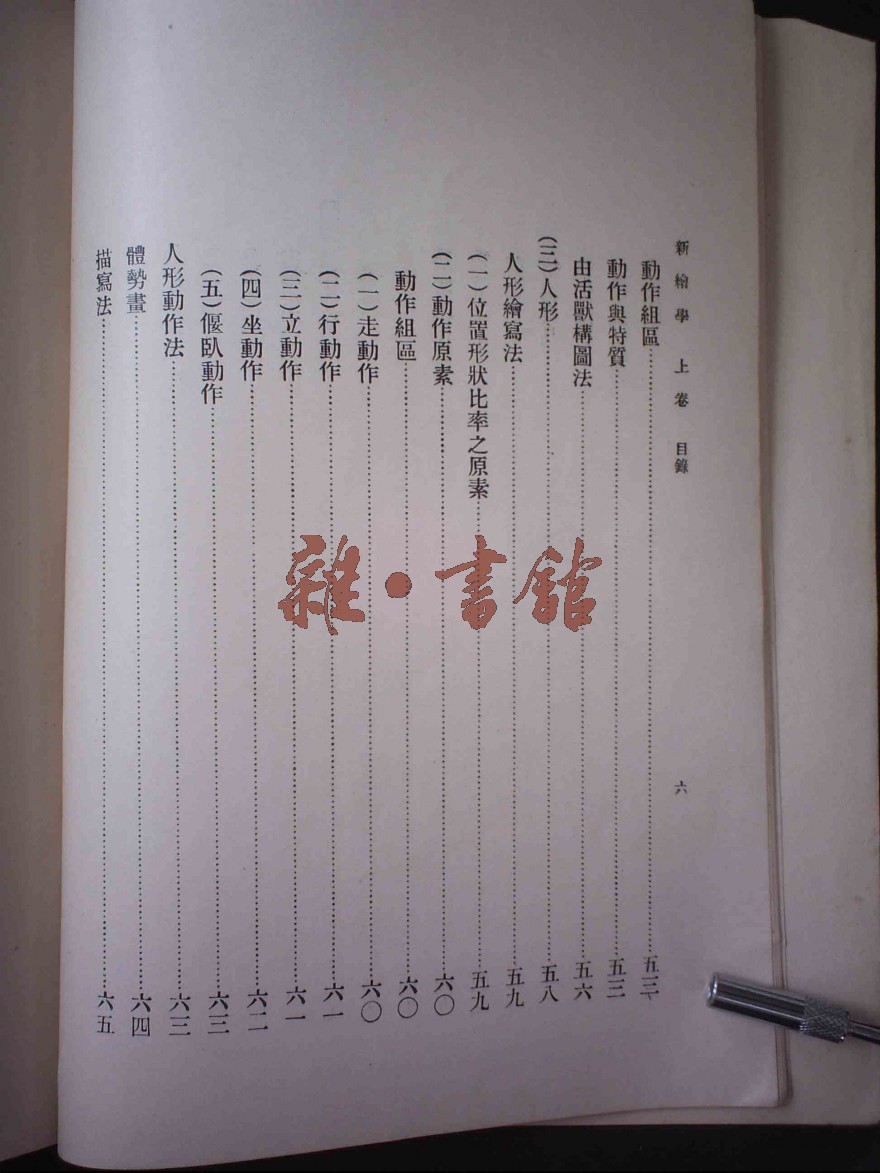 新繪學 上卷 目錄 六
動作組區……五三
動作與特質……五三
由活獸構圖法……五六
(三)人形……五八
人形繪寫法……五九
(一)位置形狀比率之原素……五九
(二)動作原素……六〇
動作組區……六〇
(一)走動作……六〇
(二)行動作……六一
(三)立動作……六一
(四)坐動作……六二
(五)偃臥動作……六三
人形動作法……六三
體勢畫……六四
描寫法……六五
雜·書館